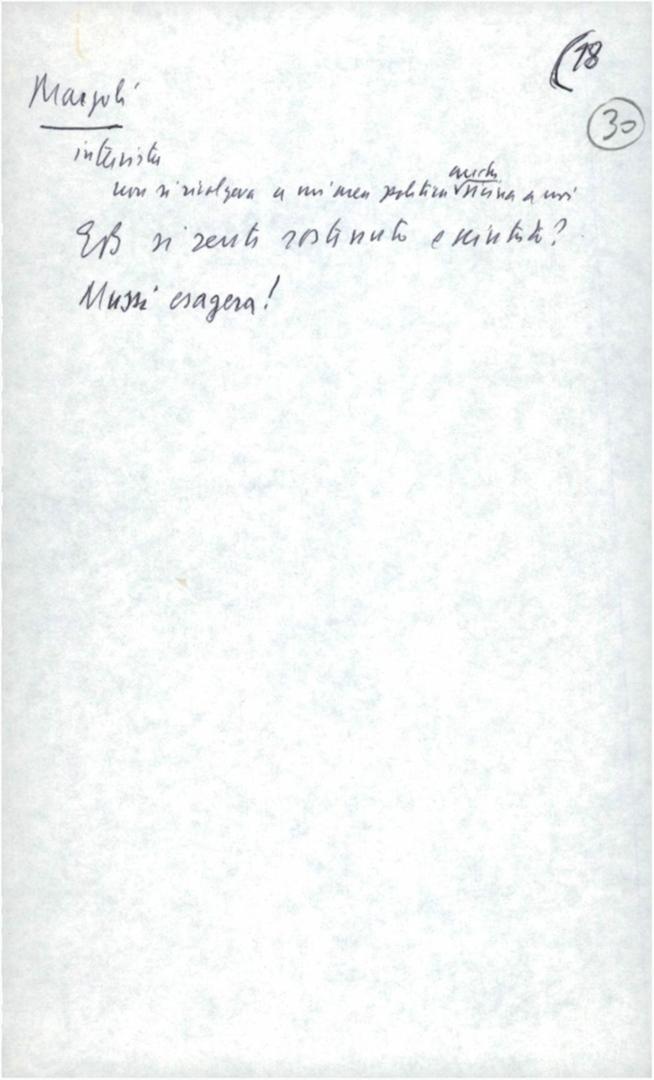 (18
30
Margoli
intervista
non si rivolgeva a un'area politica anche vicina a noi
EB si sente sostenuto e aiutato?
Mussi esagera!